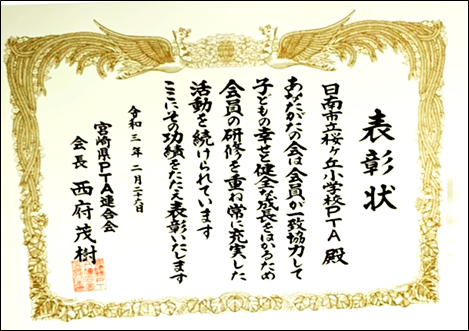 表彰状
日南市立桜ヶ丘小学校PTA 殿
あなたがたの会は会員が一致協力して
子どもの幸せと健全な成長をはかるため
会員の研修を重ね常に充実した
活動を続けられています
ここにその功績をたたえ表彰いたします
令和三年二月二十六日
宮崎県PTA連合会
会長 西府茂樹